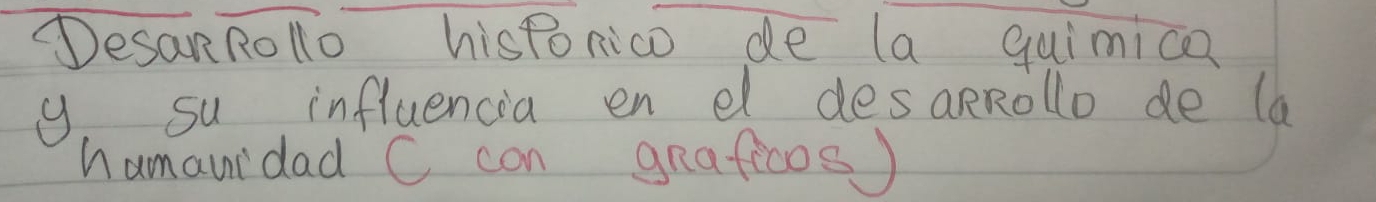 Desarrollo historico de la quimica
y su influencia en el desarrollo de la
humanidad (con graficos)